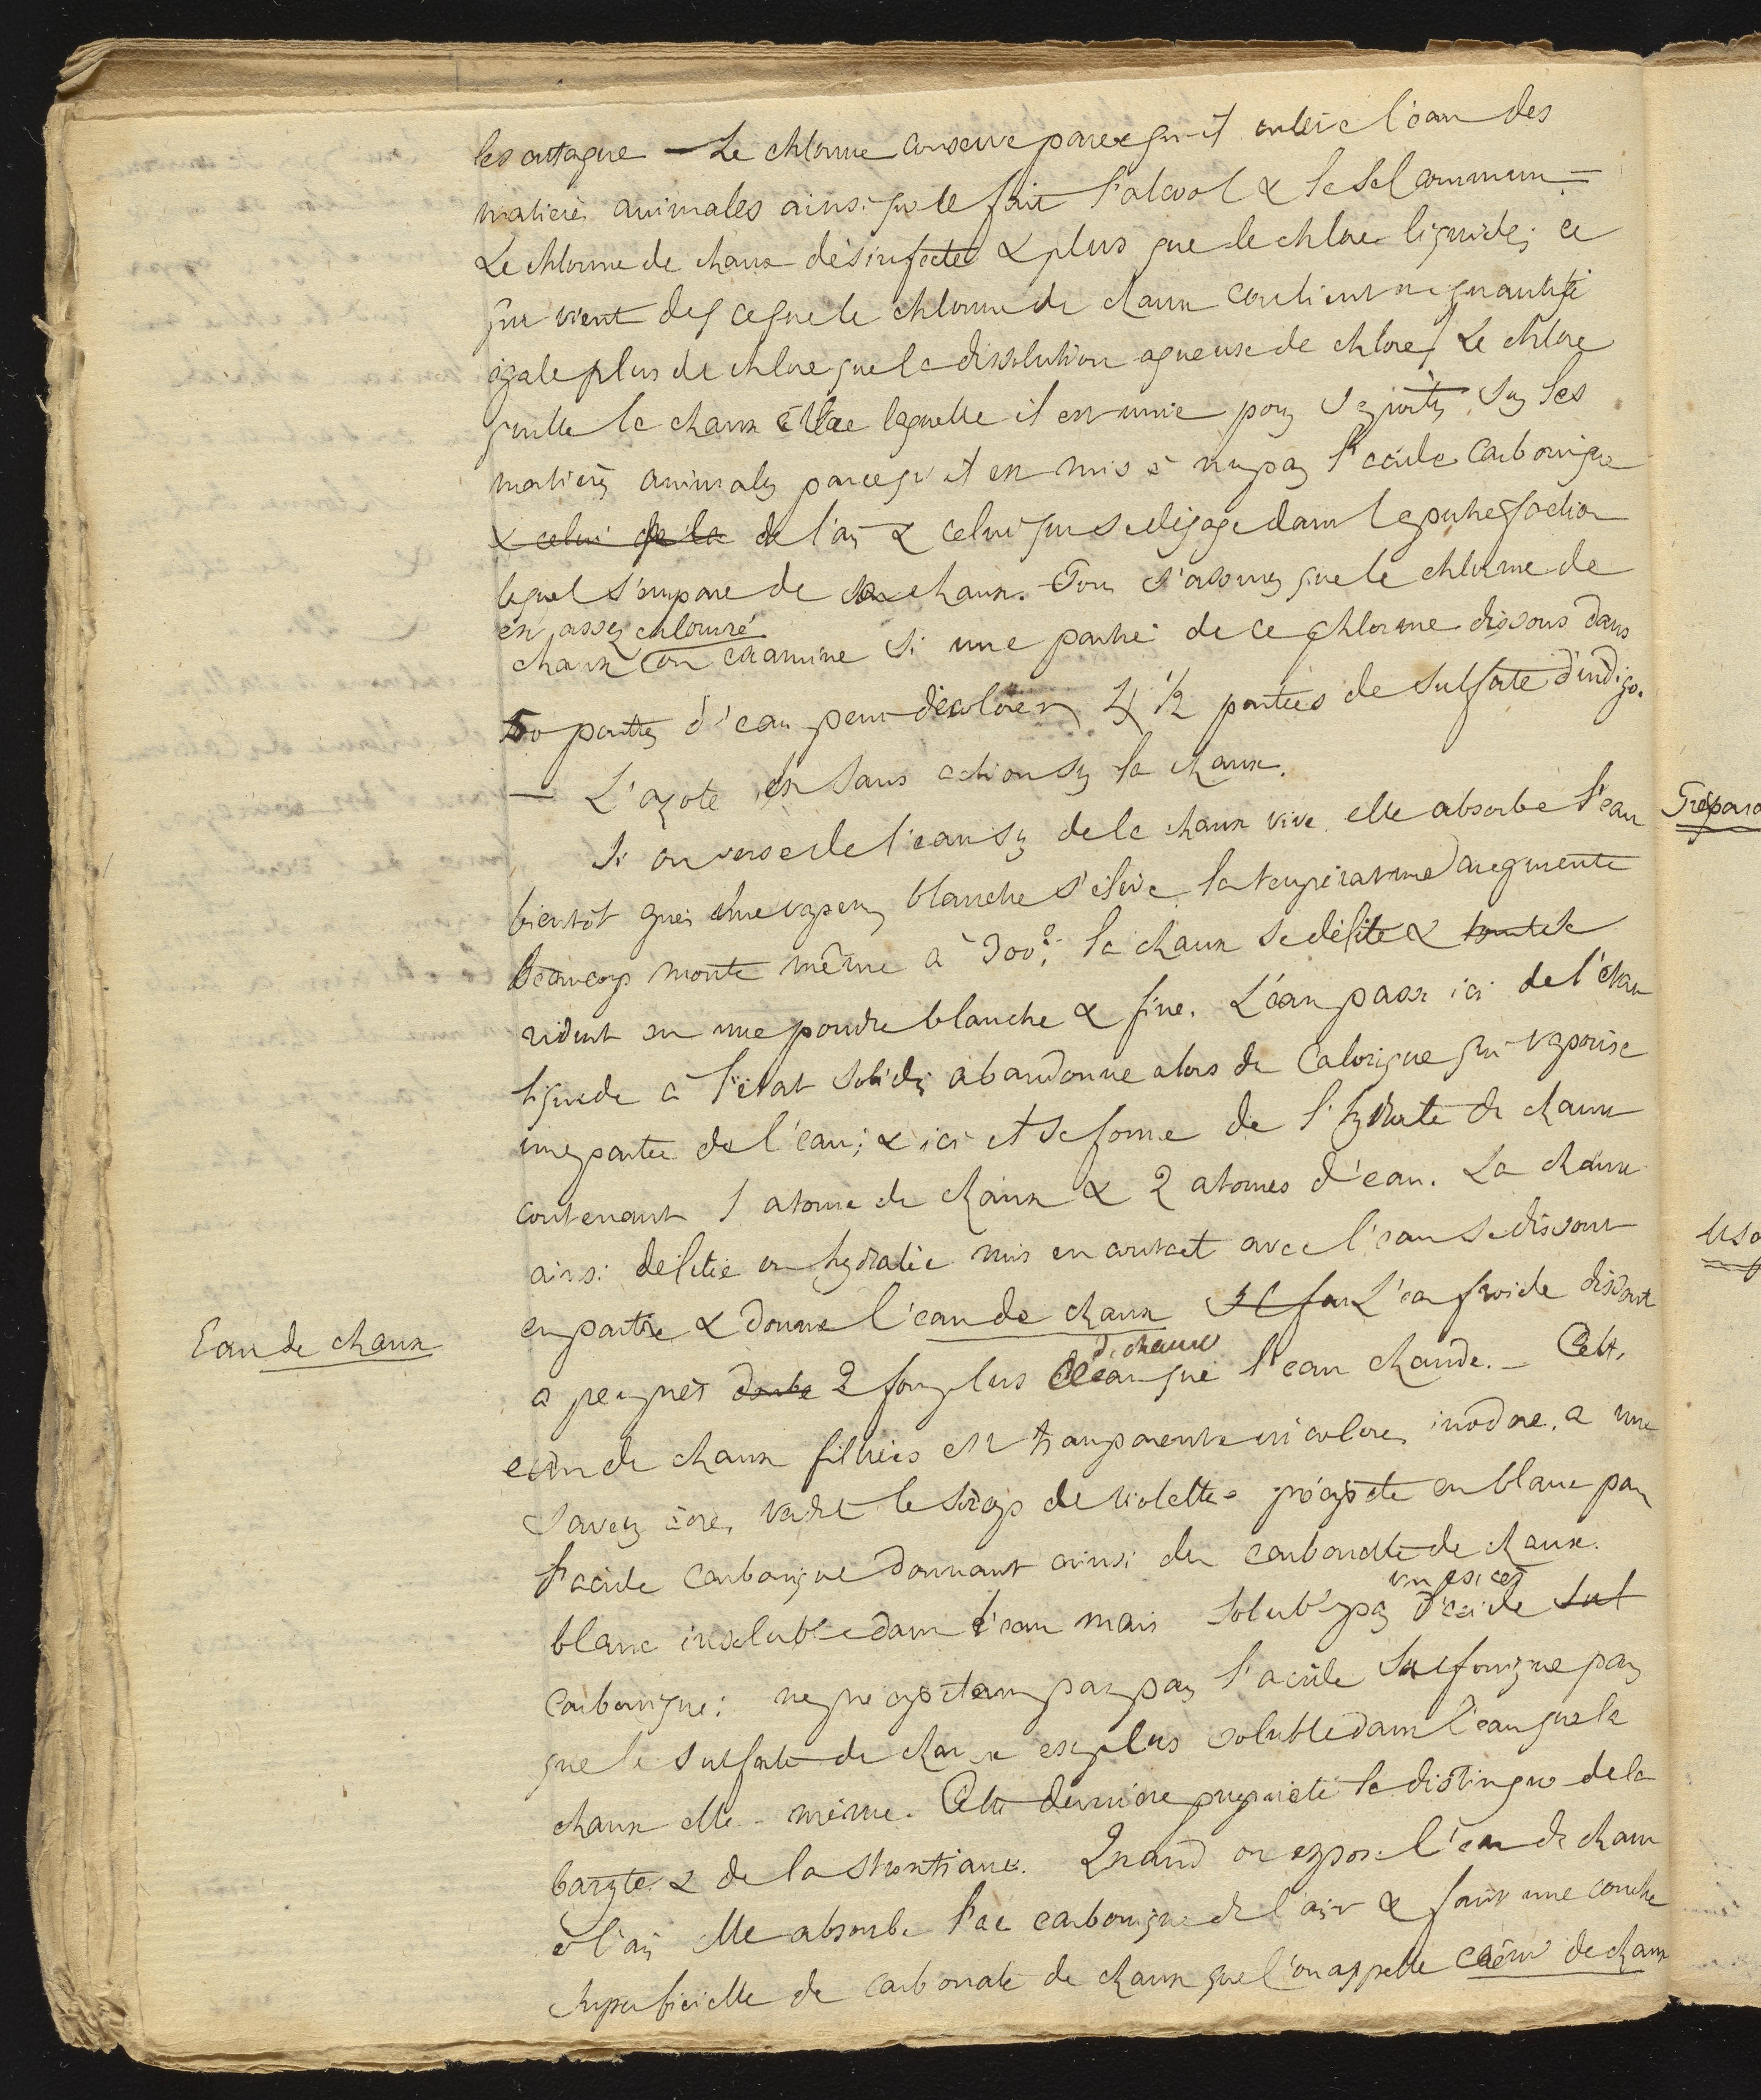 les attaque — Le chlorure conserve parcequ'il enleve l'eau des
matieres animales ainsi que le fait l'alcool & le sel commun —
Le chlorure de chaux désinfecte & plus que le chlore liquide; ce
qui vient de ce que le chlorure de chaux contient en quantité
égale plus de chlore que la dissolution aqueuse de chlore. Le chlore
quitte la chaux à laquelle il est unie pour se porter sur les
matières animales parcequ'il est mis à nu par l'acide carbonique
& celui de la de l'air & celui qui se degage dans la putrefaction
lequel s'empare de la chaux. Pour s'assurer que le chlorure de
est assez chloruré
chaux on examine si une partie de ce chlorure dissous dans
50 parties d'eau peut décolorer 4 1/2 parties de sulfate d'indigo.
— L'azote est sans action sur la chaux.
Si on verse de l'eau sur de la chaux vive elle absorbe l'eau
bientôt après une vapeur blanche s'élève la température augmente
beaucoup monte même à 300°. la chaux se délite & tout se
réduit en une poudre blanche & fine. L'eau passe ici de l'état
liquide à l'état solide, abandonne alors du calorique qui vaporise
une partie de l'eau; & ici il se forme de l'hydrate de chaux
contenant 1 atome de chaux & 2 atomes d'eau. La chaux
ainsi delitée ou hydratée mis en contact avec l'eau se dissout
en partie & donne l'eau de chaux Il faut L'eau froide dissout
Eau de chaux
de chaux
a peu près double 2 fois plus que l'eau chaude. — Cette
eau de chaux filtrée est transparente incolore, inodore, a une
saveur âcre, verdit le sirop de violettes précipite en blanc par
l'acide carbonique donnant ainsi du carbonate de chaux.
un excès
blanc insoluble dans l'eau mais soluble par d'acide sul
carbonique; ne precipitant pas par l'acide sulfurique par
que le sulfate de chaux est plus soluble dans l'eau que la
chaux elle-même. Cette dernière propriété la distingue de la
baryte & de la strontiane. Quand on expose l'eau de chaux
à l'air elle absorbe l'ac carbonique de l'air & fait une couche
superficielle de carbonate de chaux que l'on appelle crême de chaux
Prépara
Usa